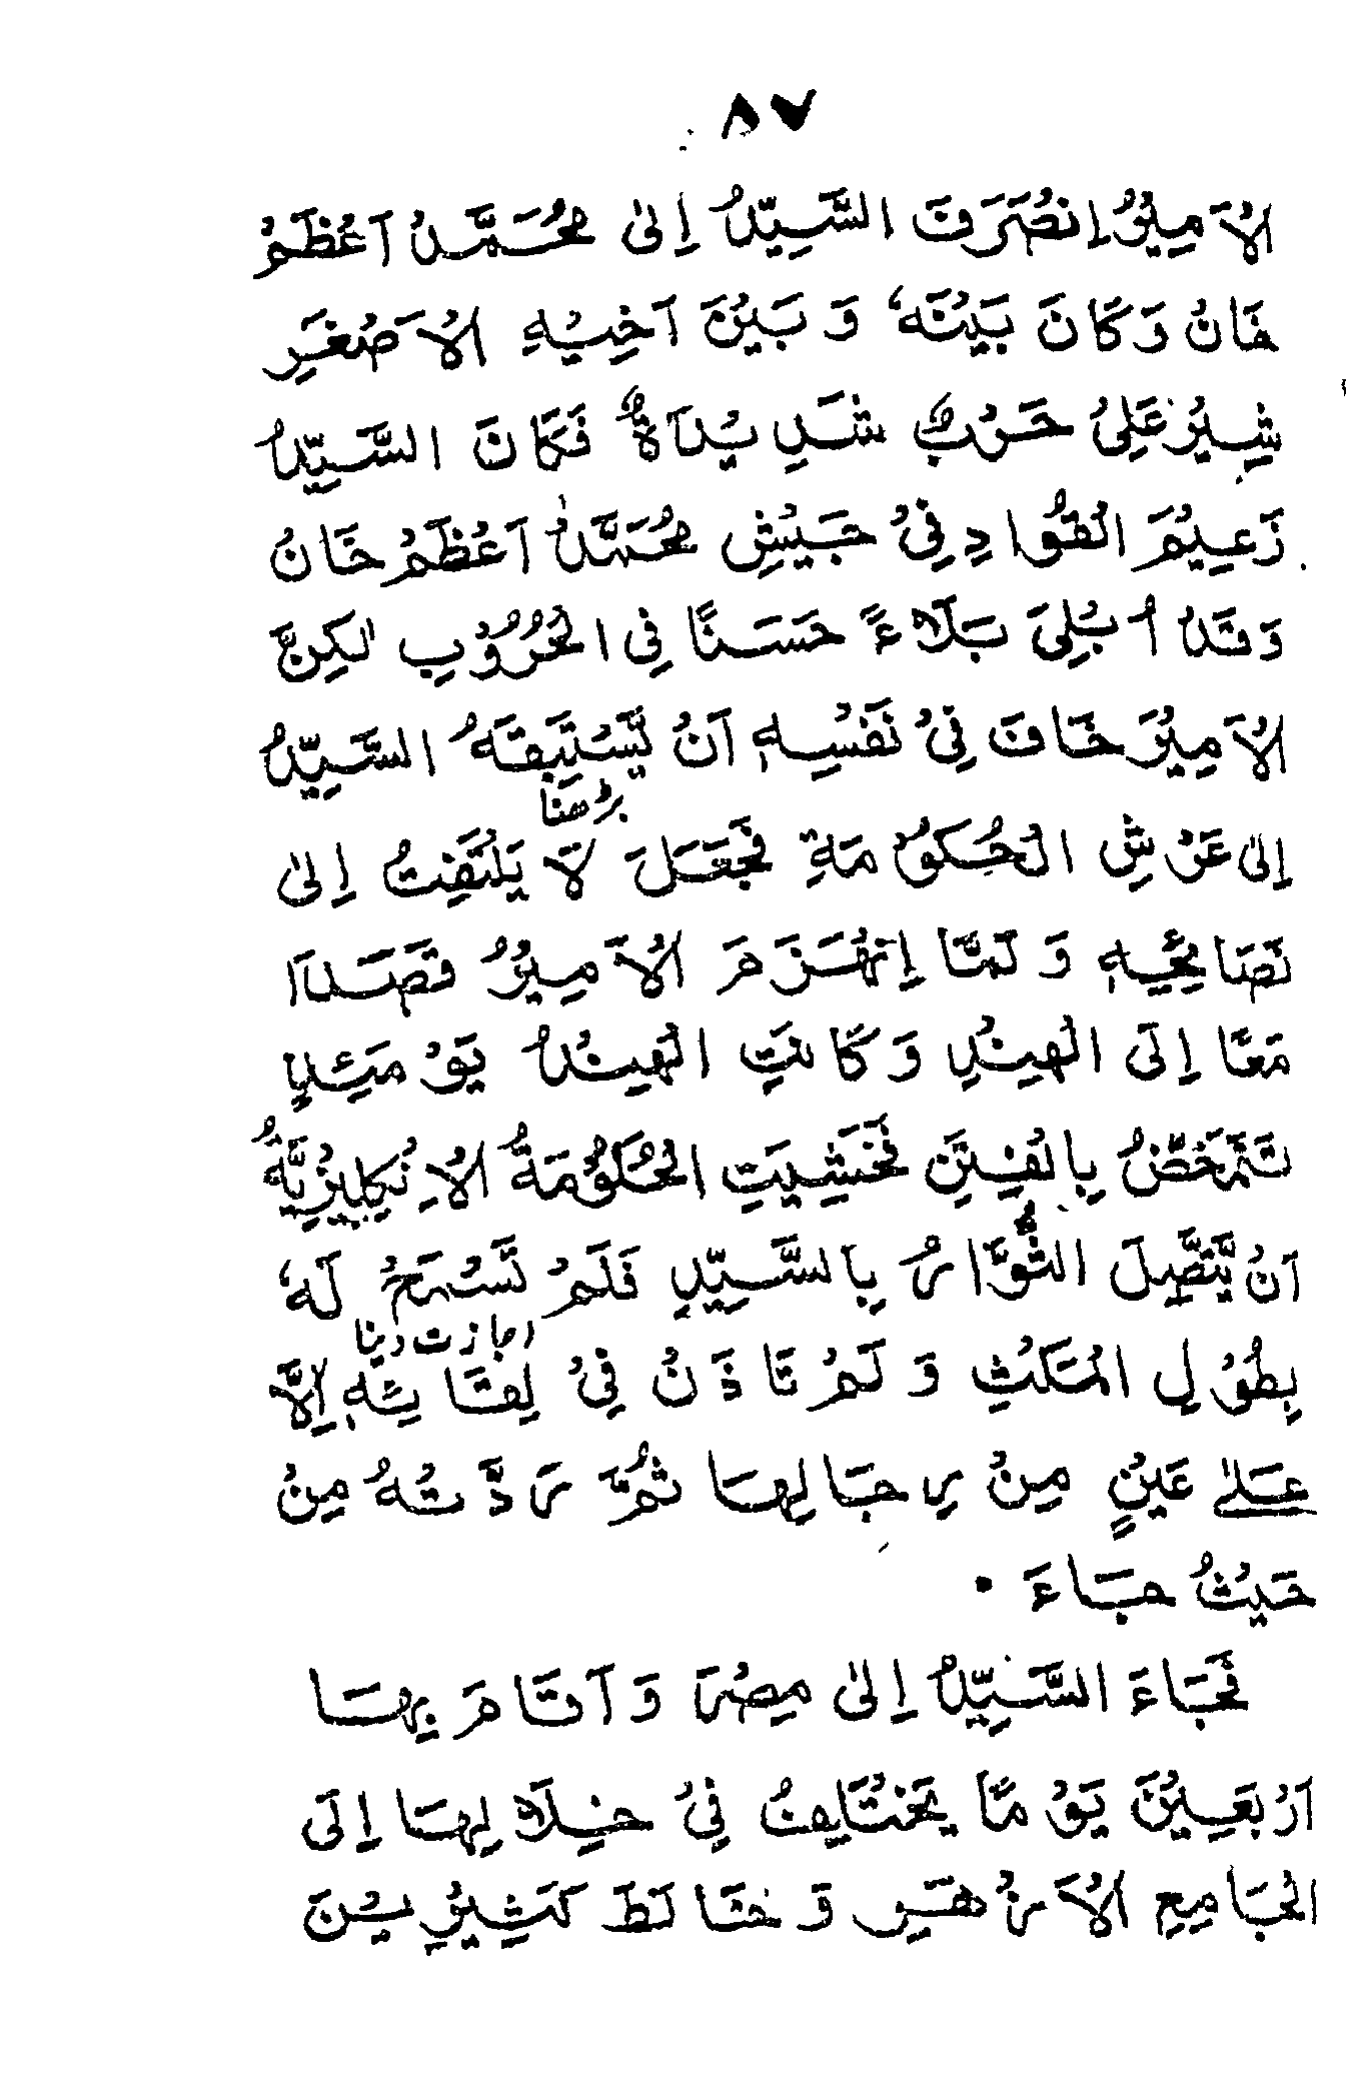 ٨٧
الْاَمِيْرُ اِنْصَرَفَ السَّيِّدُ اِلٰى مُحَمَّدْ اَعْظَمْ
خَانْ وَكَانَ بَيْنَهٗ وَ بَيْنَ اَخِيْهِ الْاَصْغَرِ
شِيْرْ عَلِىْ حَرْبٌ شَدِيْدَةٌ فَكَانَ السَّيِّدُ
زَعِيْمَ الْقُوَّادِ فِىْ جَيْشِ مُحَمَّدْ اَعْظَمْ خَانْ
وَقَدْ اُبْلِىَ بَلَاءً حَسَنًا فِى الْحُرُوْبِ لٰكِنَّ
الْاَمِيْرَ خَافَ فِىْ نَفْسِهٖ اَنْ يَّسْتَبِقَهُ السَّيِّدُ
بڑھنا
اِلٰى عَرْشِ الْحُكُوْمَةِ فَجَعَلَ لَا يَلْتَفِتُ اِلٰى
نَصَائِحِهٖ وَ لَمَّا اِنْهَزَمَ الْاَمِيْرُ قَصَدَا
مَعًا اِلَى الْهِنْدِ وَ كَانَتِ الْهِنْدُ يَوْمَئِذٍ
تَتَمَخَّضُ بِالْفِتَنِ فَخَشِيَتِ الْحُكُوْمَةُ الْاِنْكِلِيْزِيَّةُ
اَنْ يَّتَّصِلَ الثُّوَّارُ بِالسَّيِّدِ فَلَمْ تَسْمَحْ لَهٗ
اجازت دینا
بِطُوْلِ الْمَكْثِ وَ لَمْ تَاذَنْ فِىْ لِقَائِهٖ اِلَّا
عَلٰى عَيْنٍ مِنْ رِجَالِهَا ثُمَّ رَدَّتْهُ مِنْ
حَيْثُ جَاءَ ۰
فَجَاءَ السَّيِّدُ اِلٰى مِصْرَ وَ اَقَامَ بِهَا
اَرْبَعِيْنَ يَوْمًا يَخْتَلِفُ فِىْ خِلَالِهَا اِلَى
الْجَامِعِ الْاَزْهَرِ وَ خَالَطَ كَثِيْرِيْنَ